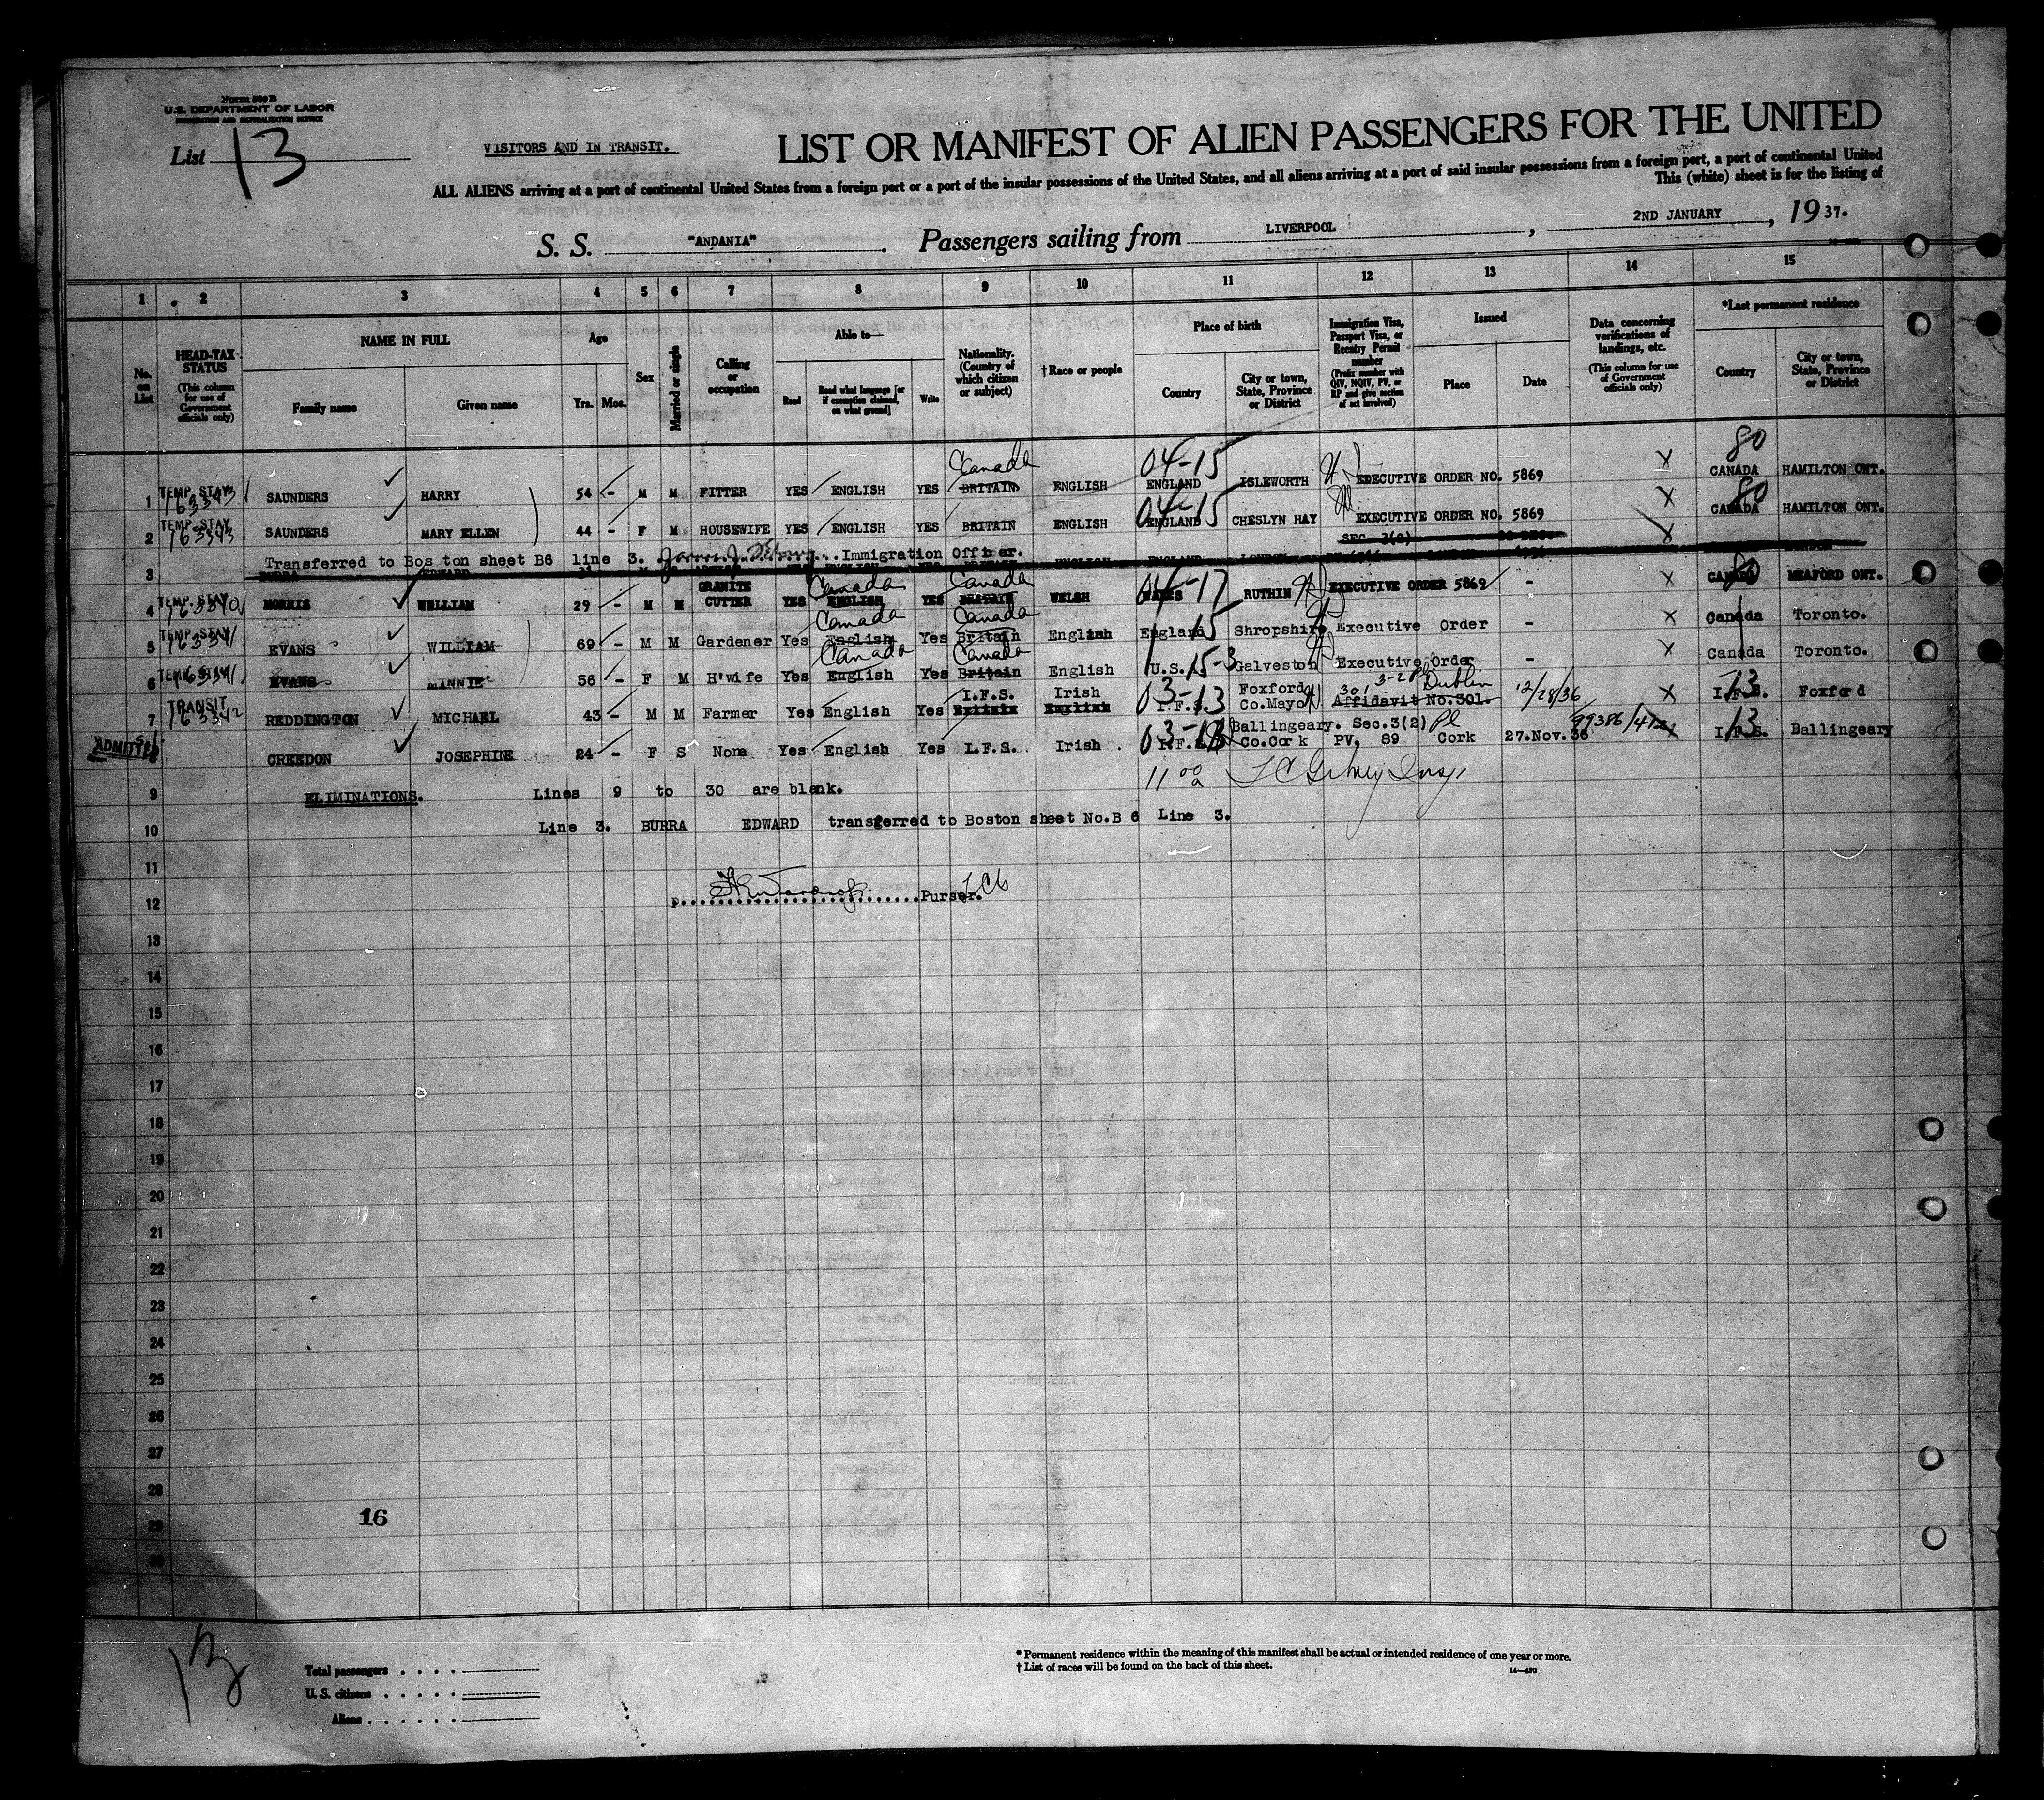 Form 500 B
U.S. DEPARTMENT OF LABOR
IMMIGRATION AND NATURALIZATION SERVICE
List 13
VISITORS AND IN TRANSIT.
LIST OR MANIFEST OF ALIEN PASSENGERS FOR THE UNITED
ALL ALIENS arriving at a port of continental United States from a foreign port or a port of the insular possessions of the United States, and all aliens arriving at a port of said insular possessions from a foreign port, a port of continental United
This (white) sheet is for the listing of
S. S. "ANDANIA" . Passengers sailing from LIVERPOOL , 2ND JANUARY , 19 37.
1 2 3 4 5 6 7 8 9 10 11 12 13 14 15
No. on List
HEAD-TAX STATUS (This column for use of Government officials only)
NAME IN FULL Family name Given name
Age Yrs. Mos.
Sex
Married or single
Calling or occupation
Able to— Read Read what language [or if exemption claimed, on what ground] Write
Nationality. (Country of which citizen or subject)
† Race or people
Place of birth Country City or town, State, Province or District
Immigration Visa, Passport Visa, or Reentry Permit number (Prefix number with QIV, NQIV, PV, or RP and give section of act involved)
Issued Place Date
Data concerning verifications of landings, etc. (This column for use of Government officials only)
*Last permanent residence Country City or town, State, Province or District
1 TEMP. STAY 163343 SAUNDERS HARRY 54 - M M FITTER YES ENGLISH YES BRITAIN Canada ENGLISH ENGLAND 04-15 ISLEWORTH EXECUTIVE ORDER NO. 5869 X CANADA 80 HAMILTON ONT.
2 TEMP. STAY 163343 SAUNDERS MARY ELLEN 44 - F M HOUSEWIFE YES ENGLISH YES BRITAIN ENGLISH ENGLAND 04-15 CHESLYN HAY EXECUTIVE ORDER NO. 5869 X CANADA 80 HAMILTON ONT.
SEC. 3(2)
3 Transferred to Boston sheet B6 line 3. Immigration Officer.
BURRA EDWARD ENGLISH ENGLAND LONDON
4 TEMP. STAY 163340 MORRIS WILLIAM 29 - M M GRANITE CUTTER YES ENGLISH Canada YES BRITAIN Canada WELSH WALES 04-17 RUTHIN EXECUTIVE ORDER 5869 - X CANADA 80 MEAFORD ONT.
5 TEMP. STAY 163341 EVANS WILLIAM 69 - M M Gardener Yes English Canada Yes Britain Canada English England 15 Shropshire Executive Order - X Canada Toronto.
6 TEMP. STAY 163341 EVANS MINNIE 56 - F M H'wife Yes English Canada Yes Britain Canada English U.S.A. 15-3 Galveston Executive Order - X Canada Toronto.
7 TRANSIT 163342 REDDINGTON MICHAEL 43 - M M Farmer Yes English Yes Britain I.F.S. English Irish I.F.S. 03-13 Foxford Co.Mayo 301 3-2 Affidavit No.301. Dublin 12/28/36 X I.F.S. 13 Foxford
ADMITTED CREEDON JOSEPHINE 24 - F S None Yes English Yes I.F.S. Irish I.F.S. 03-13 Ballingeary. Co.Cork Sec.3(2) PV. 89 Cork 27.Nov.36 99386/412 I.F.S. 13 Ballingeary
9 ELIMINATIONS. Lines 9 to 30 are blank.
11 00 a
10 Line 3. BURRA EDWARD transferred to Boston sheet No.B 6 Line 3.
11
12 p. Purser.
13
14
15
16
17
18
19
20
21
22
23
24
25
26
27
28
29 16
30
13
Total passengers
U. S. citizens
Aliens
* Permanent residence within the meaning of this manifest shall be actual or intended residence of one year or more.
† List of races will be found on the back of this sheet.
14—430